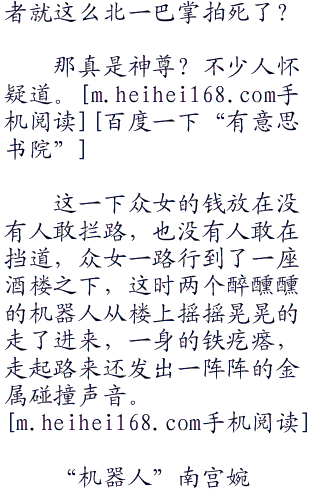 者就这么北一巴掌拍死了？
那真是神尊？不少人怀
疑道。[m.heihei168.com手
机阅读][百度一下“有意思
书院”]
这一下众女的钱放在没
有人敢拦路，也没有人敢在
挡道，众女一路行到了一座
酒楼之下，这时两个醉醺醺
的机器人从楼上摇摇晃晃的
走了进来，一身的铁疙瘩，
走起路来还发出一阵阵的金
属碰撞声音。
[m.heihei168.com手机阅读]
“机器人”南宫婉